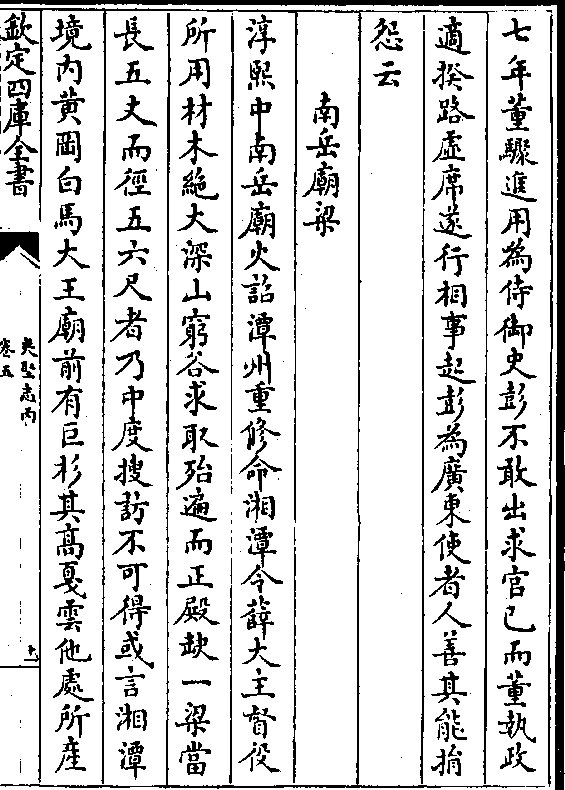 七年董驟進用為侍御史彭不敢出求官已而董執政
適揆路虛席遂行相事起彭為廣東使者人善其能捐
怨云
南岳廟梁
淳熙中南岳廟火詔潭州重修命湘潭令薛大主督役
所用材木絶大深山窮谷求取殆遍而正殿缺一梁當
長五丈而徑五六尺者乃中度搜訪不可得或言湘潭
境内黄岡白馬大王廟前有巨杉其髙戞雲他處所産
欽定四庫全書
夷堅志丙
卷五